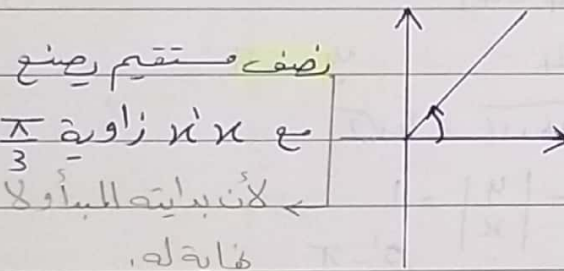 نصف مستقيم يصنع
مع x'x زاوية π/3
لأن بدايته المبدأ ولا
نهاية له.